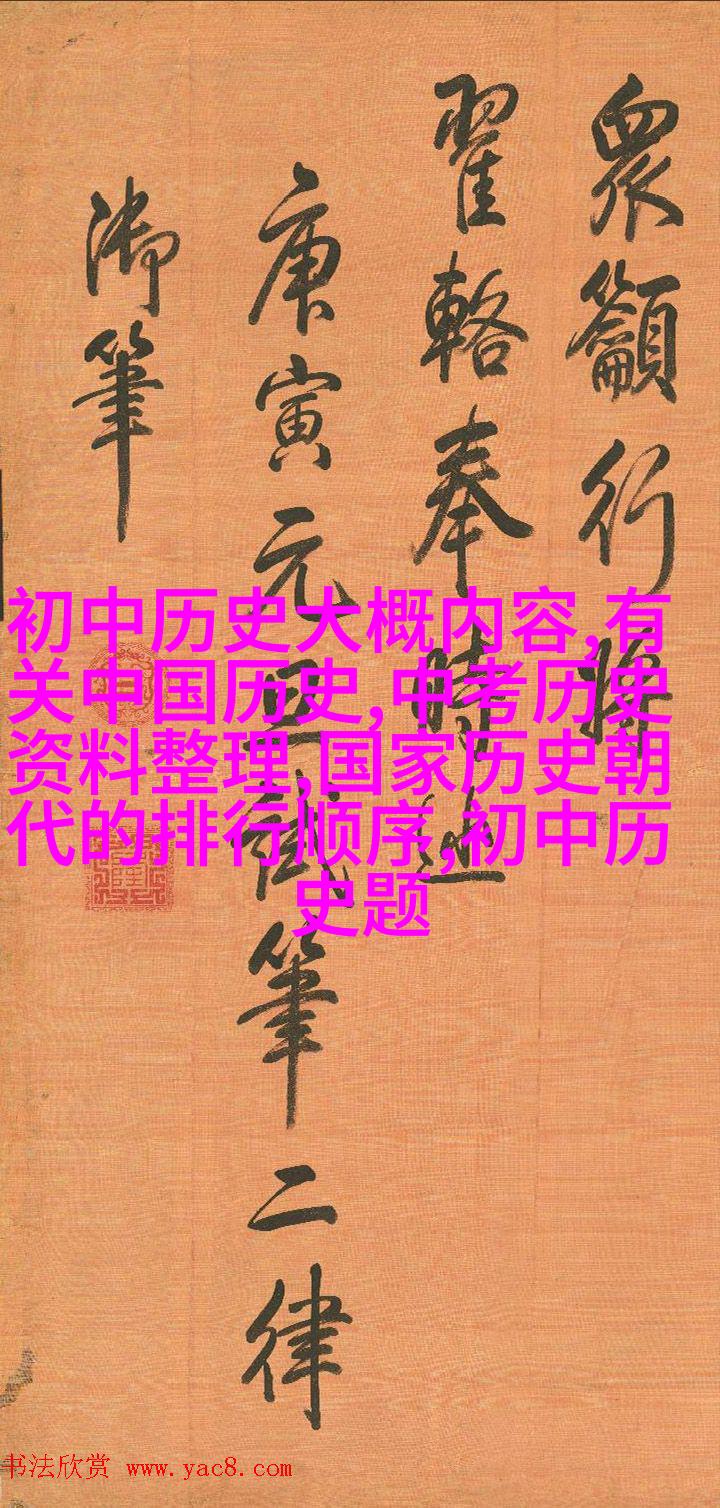 眾籲行將
翟輅奉時巡
庚寅元旦試筆二律
御筆
初中历史大概内容,有
关中国历史,中考历史
资料整理,国家历史朝
代的排行顺序,初中历
史题
书法欣赏 www.yac8.com